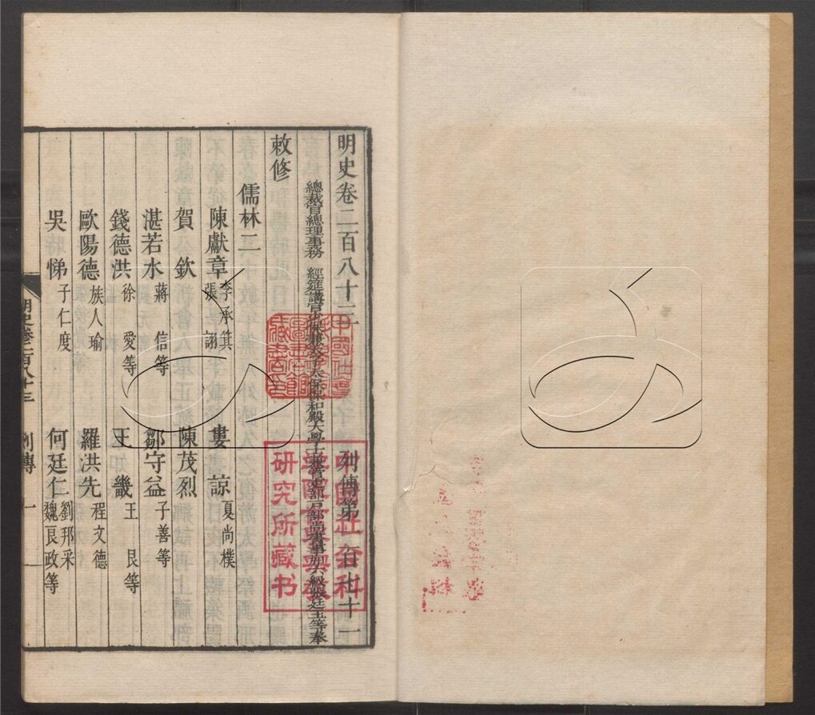 明史卷二百八十三 列傳第一百七十一
總裁官總理事務 經筵講官少保兼太子太保保和殿大學士兼管吏部戶部尚書事加六級張廷玉等奉
敕修
儒林二
陳獻章 李承箕 張詡 婁諒 夏尚樸
賀欽 陳茂烈
湛若水 蔣信等 鄒守益 子善等
錢德洪 徐愛等 王畿 王艮等
歐陽德 族人瑜 羅洪先 程文德
吳悌 子仁度 何廷仁 劉邦采 魏良政等
明史卷二百八十三 列傳 一
研究所藏书